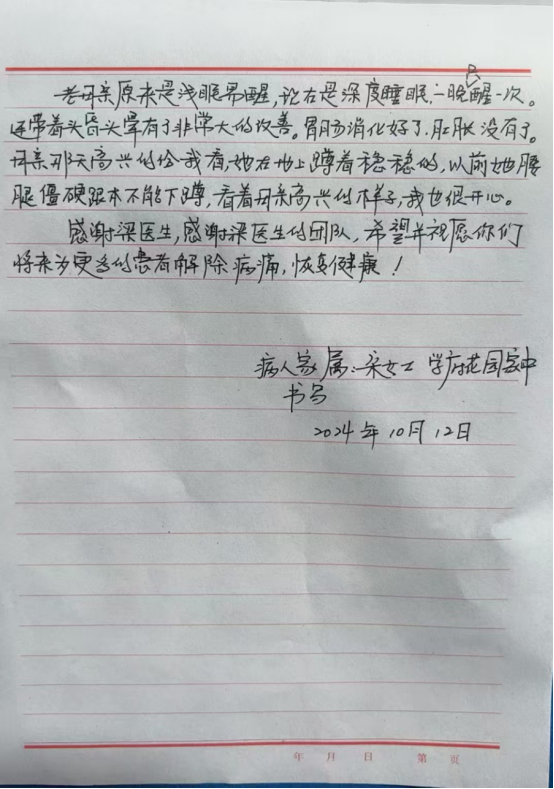 老母亲原来是浅眠易醒，现在是深度睡眠，一晚只醒一次。
连带着头昏头晕有了非常大的改善。胃肠消化好了，肚胀没有了。
母亲那天高兴的给我看，她在地上蹲着稳稳的，以前她腰
腿僵硬跟本不能下蹲，看着母亲高兴的样子，我也很开心。
感谢梁医生，感谢梁医生的团队，希望并祝愿你们
将来为更多的患者解除病痛，恢复健康！
病人家属：宋女士 学府花园家中
书写
2024年10月12日
年 月 日 第 页